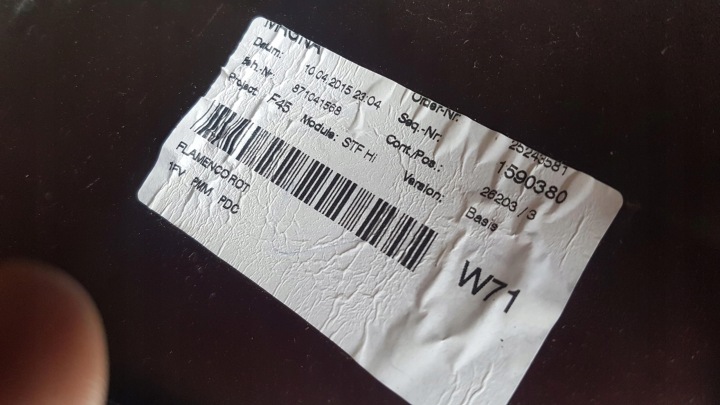 MAGNA
Datum: 10.04.2015 23:04 Order-Nr. 25243581
Beh.-Nr. 871041568 Seq.-Nr. 1590380
Projekt: F45 Module: STF Hi Cont./Pos.: 26203 / 3
Version: Basis
FLAMENCOROT
1FV PMM PDC
W71